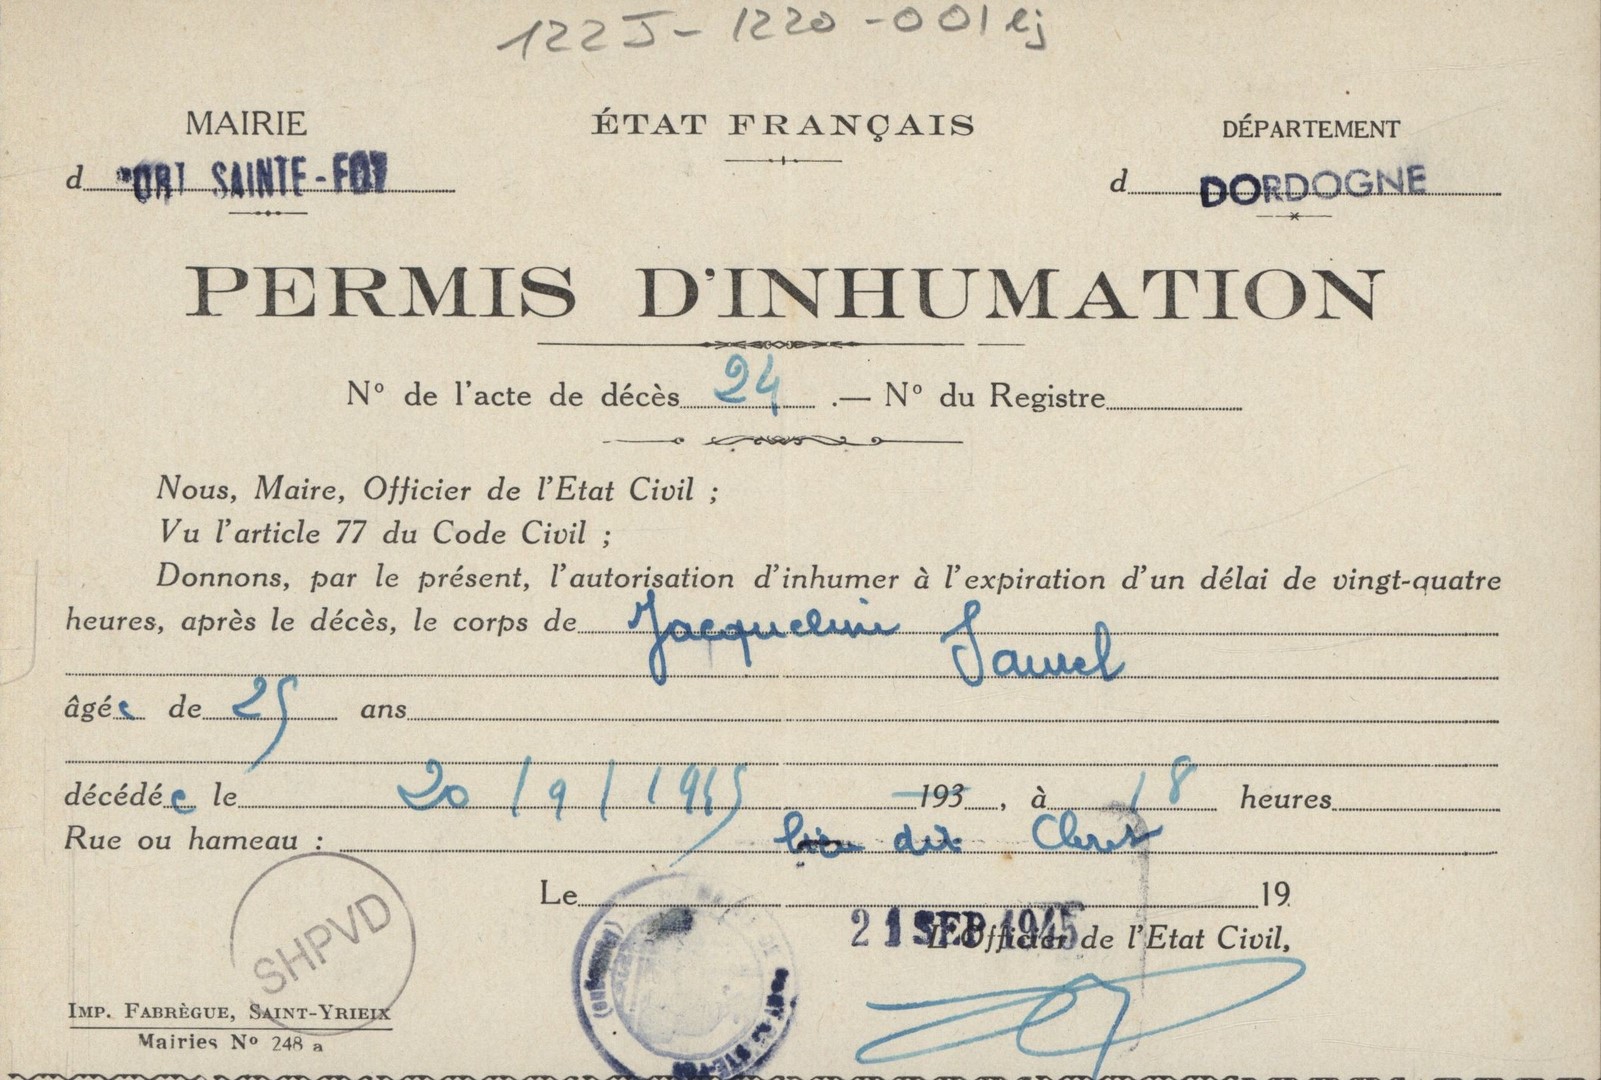 122J-1220-001 ej
MAIRIE
d PORT SAINTE-FOY
ÉTAT FRANÇAIS
DÉPARTEMENT
d DORDOGNE
PERMIS D'INHUMATION
Nº de l'acte de décès 24 .— Nº du Registre
Nous, Maire, Officier de l'Etat Civil ;
Vu l'article 77 du Code Civil ;
Donnons, par le présent, l'autorisation d'inhumer à l'expiration d'un délai de vingt-quatre
heures, après le décès, le corps de Jacqueline
âgée de 25 ans
décédée le 20/9/1945 193 , à 18 heures
Rue ou hameau : lieu dit
Le 19
21 SEP 1945
L'Officier de l'Etat Civil,
SHPVD
IMP. FABRÈGUE, SAINT-YRIEIX
Mairies Nº 248 a